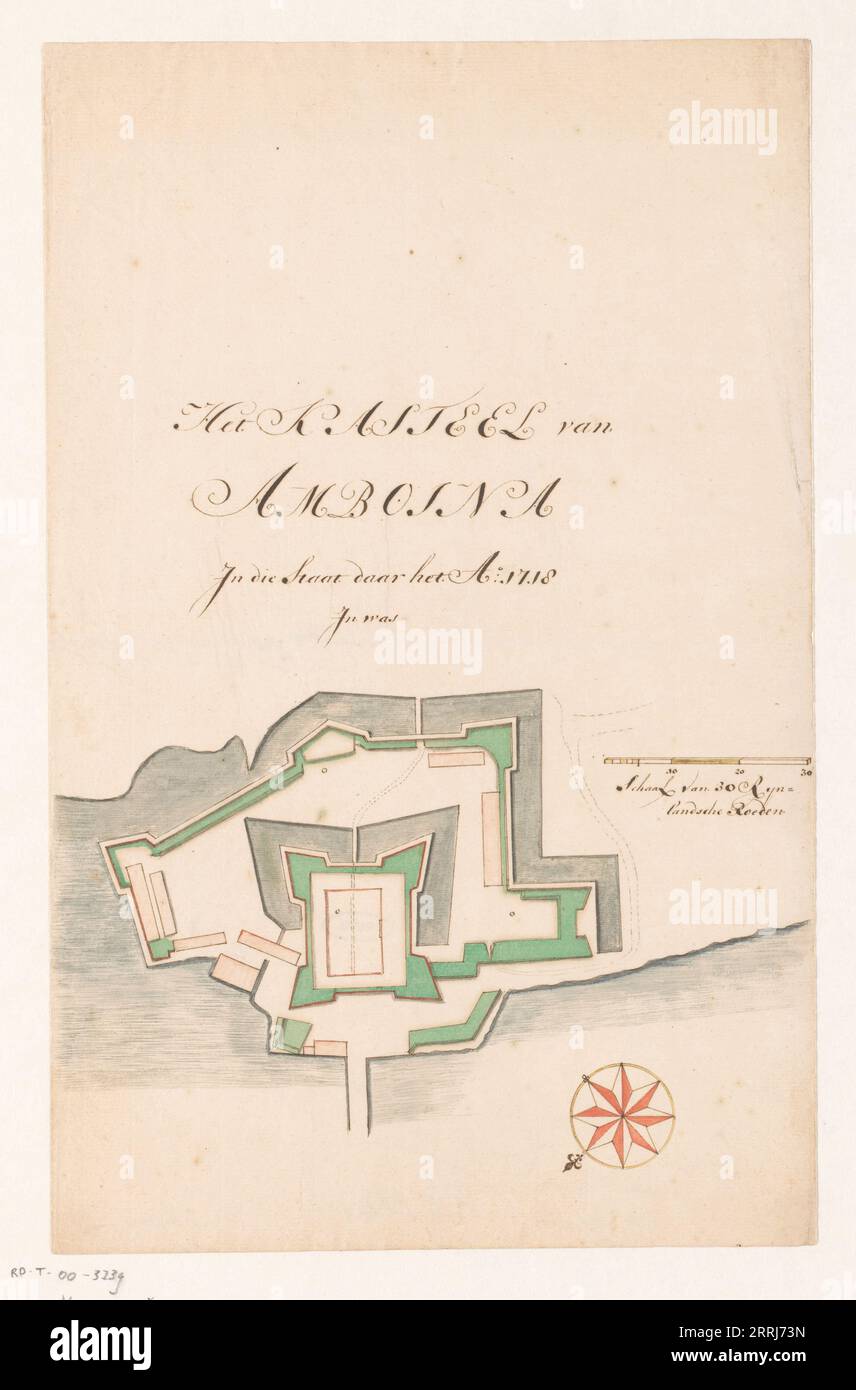 Het KASTEEL van
AMBOINA
In die Staat daar het Ao: 1718
In was
10 20 30
Schaal van 30 Ryn=
landsche Roeden
RP-T-00-3239
alamy
Image ID: 2RRJ73N
www.alamy.com